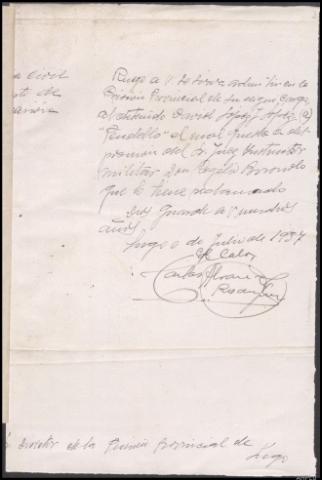 a Civil
Ruego a V. se sirva admitir en la
Prision Provincial de su digno cargo
al detenido David López López (a)
"Pendello" el cual queda a dis-
posicion del Sr. Juez Instructor
militar Don Rogelio
que le tiene reclamado
Dios guarde a V. muchos
años.
Lugo 6 de Julio de 1937
El Cabo
Carlos Alvarez
Director de la Prision Provincial de
Lugo